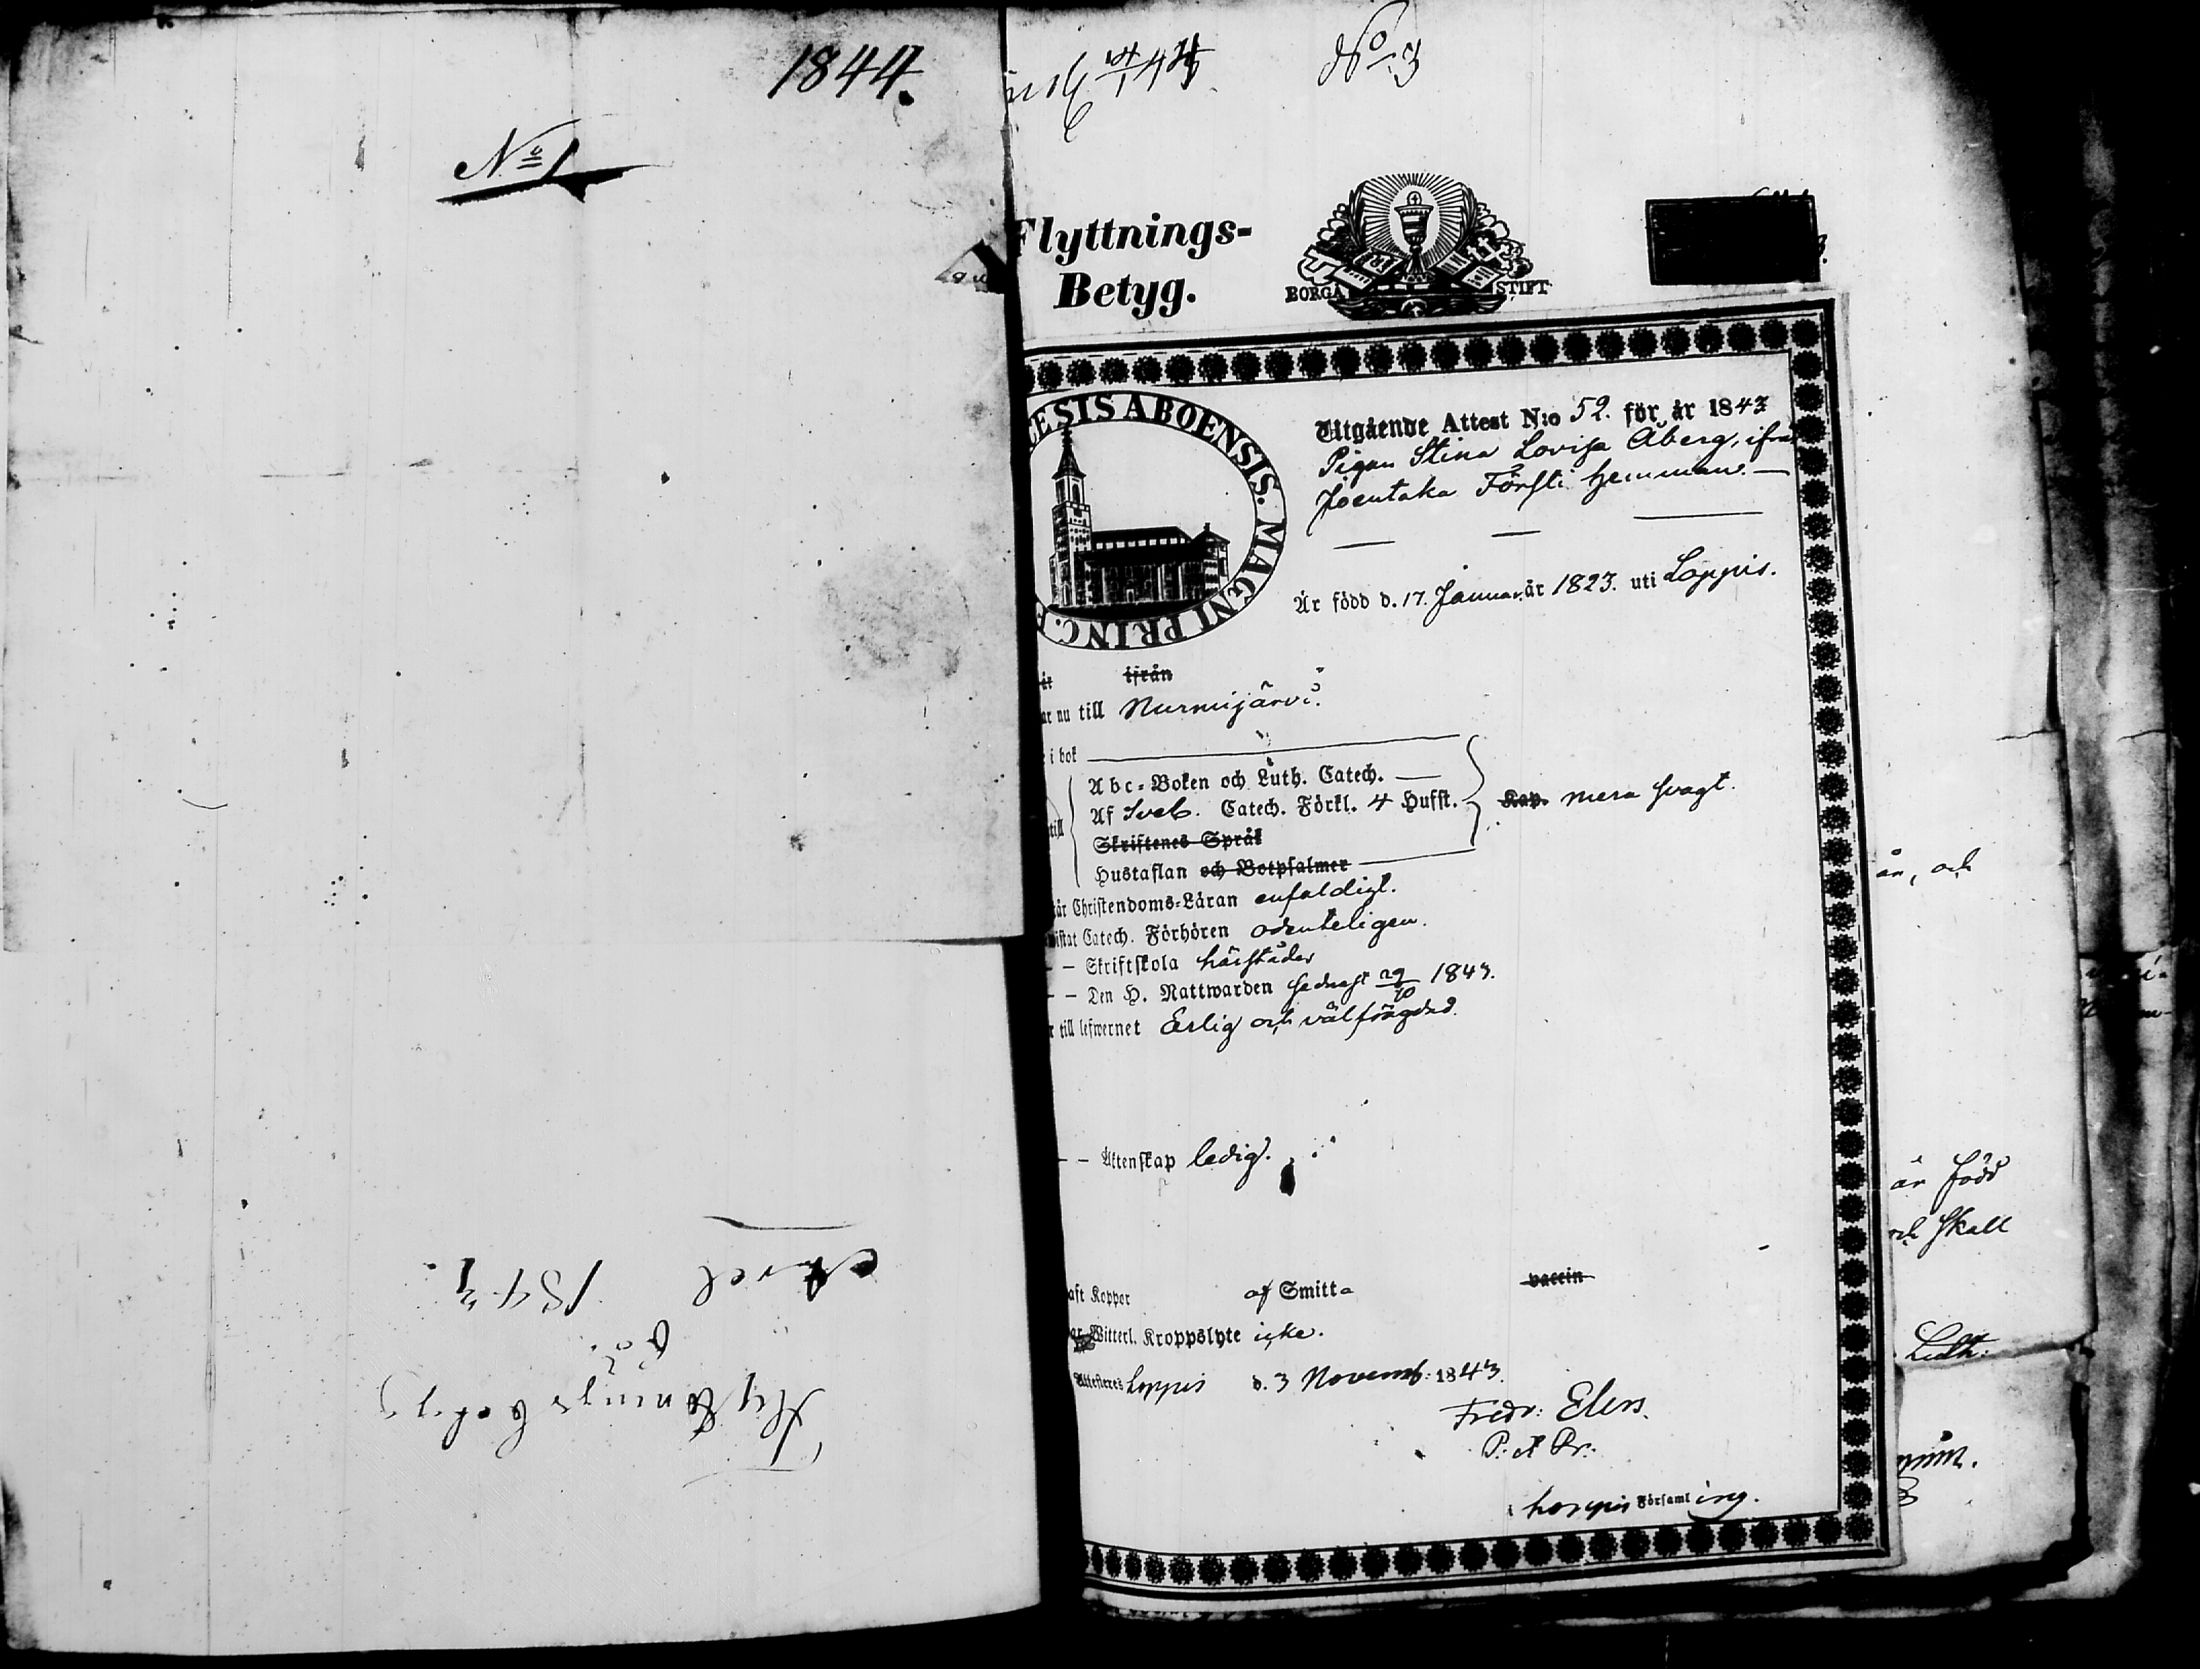 1844.
No 1
Flyttnings betyg
för
året 1843.
No 3
Flyttnings-
Betyg.
BORGÅ STIFT
ESIS ABOENSIS. MAGNI PRINC.
Utgående Attest N:o 52. för år 1843
Pigan Stina Lovisa Åberg, ifrån
Joentaka Förfti hemman. —
Är född d. 17. Januar. år 1823. uti Loppis.
ifrån
nu till Nurmijärvi.
i bok
Abc-Boken och Luth. Catech. —
Af Sveb. Catech. Förkl. 4 Hufst. Kap. mera svagt.
till
Skriftenes Språk
Hustaflan och Botpsalmer
Christendoms-Läran enfaldigt.
Catech. Förhören ordenteligen.
— Skriftskola härstädes
— Den H. Nattwarden sednast 29/10 1843.
till lefwernet Ärlig och välfrägdad.
— Äktenskap ledig.
haft Koppor af Smitta vaccin
Witterl. Kroppslyte icke.
Attesteres Loppis d. 3 Novemb. 1843.
Fredr: Elers.
P. A Pr.
i Loppis Församling.
än, och
är född
och skall
Luth: